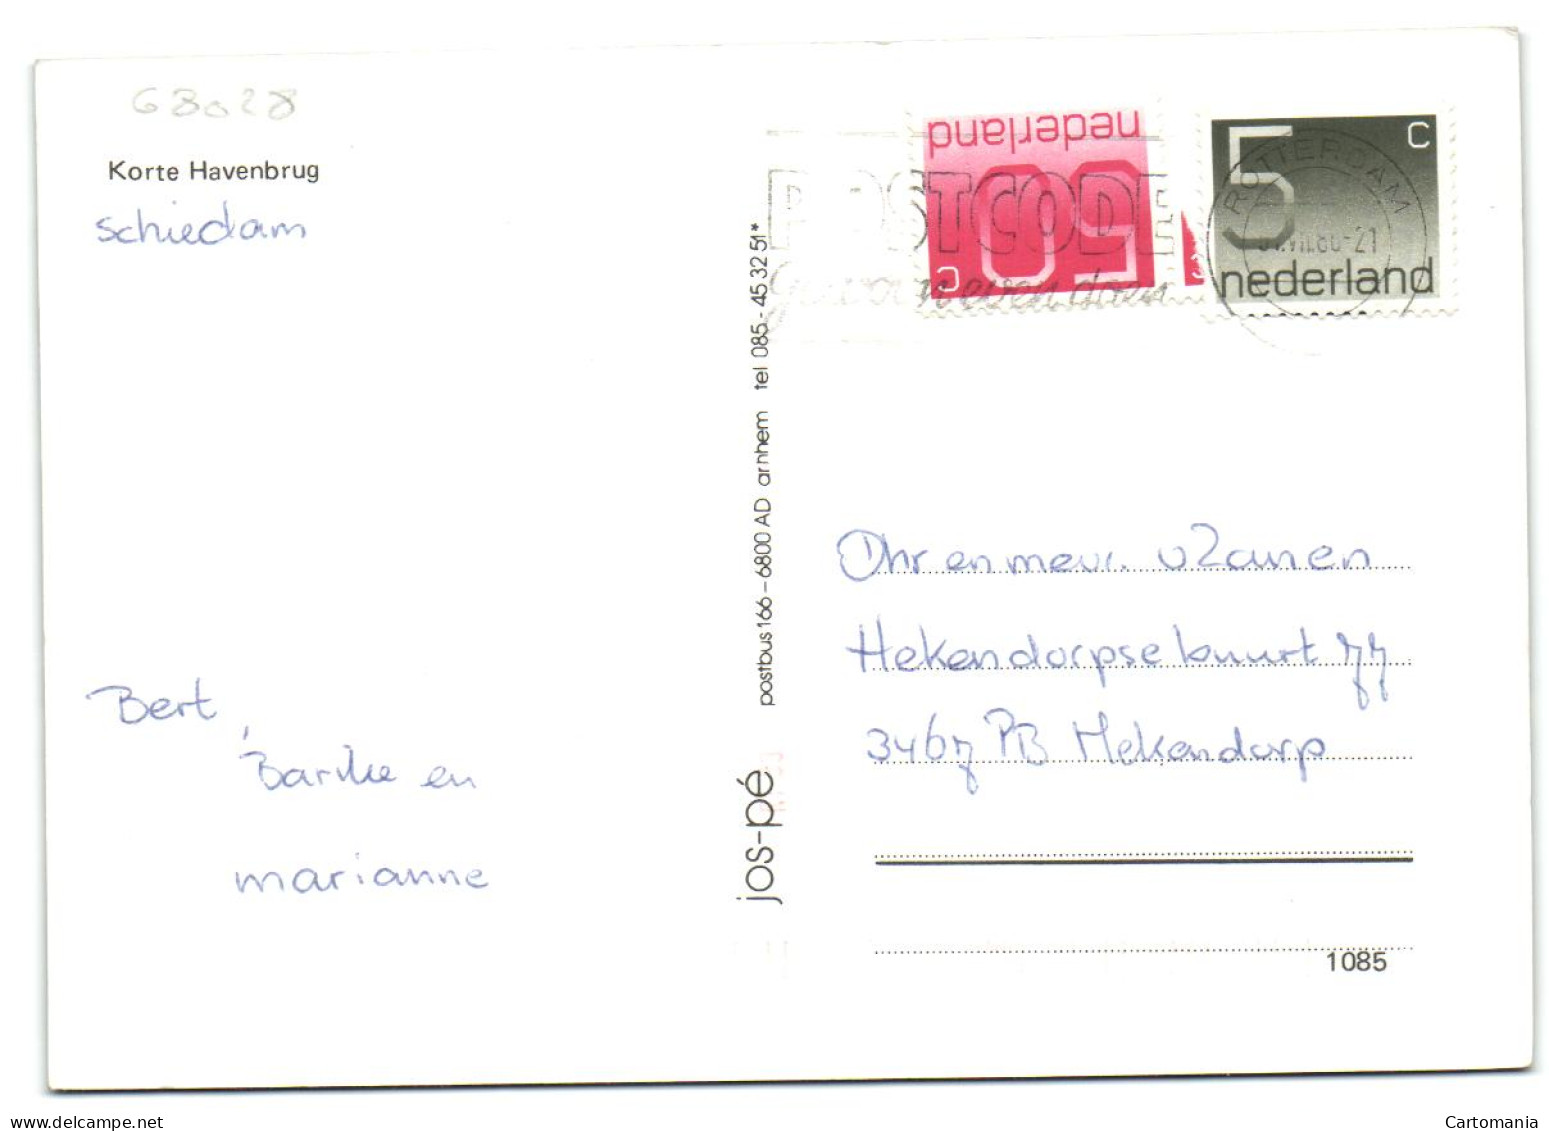 68028
Korte Havenbrug
schiedam
nederland
50 C
POSTCODE
gewoon even doen
5 C
nederland
ROTTERDAM
postbus 166 - 6800 AD arnhem tel 085 - 45 32 51*
jos-pé
Dhr en mevr. v Zanen
Hekendorpse buurt 77
3467 PB Hekendorp
Bert,
Barike en
marianne
1085
Cartomania